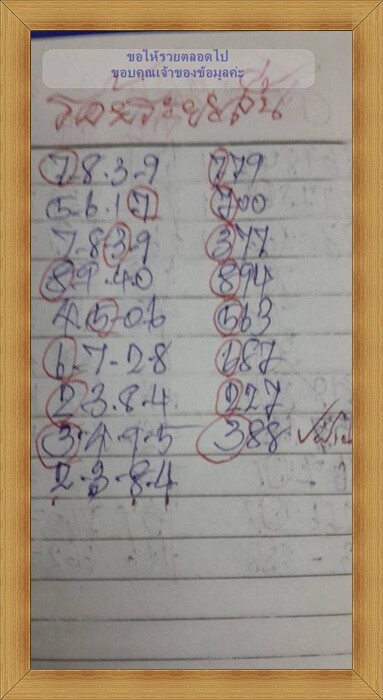 ขอให้รวยตลอดไป
ขอบคุณเจ้าของข้อมูลค่ะ
7.8.3.9 779
5.6.1.7 700
7.8.3.9 377
8.9.4.0 894
4.5.0.6 563
6.7.2.8 687
2.3.8.4 227
3.4.9.5 388
2.3.8.4